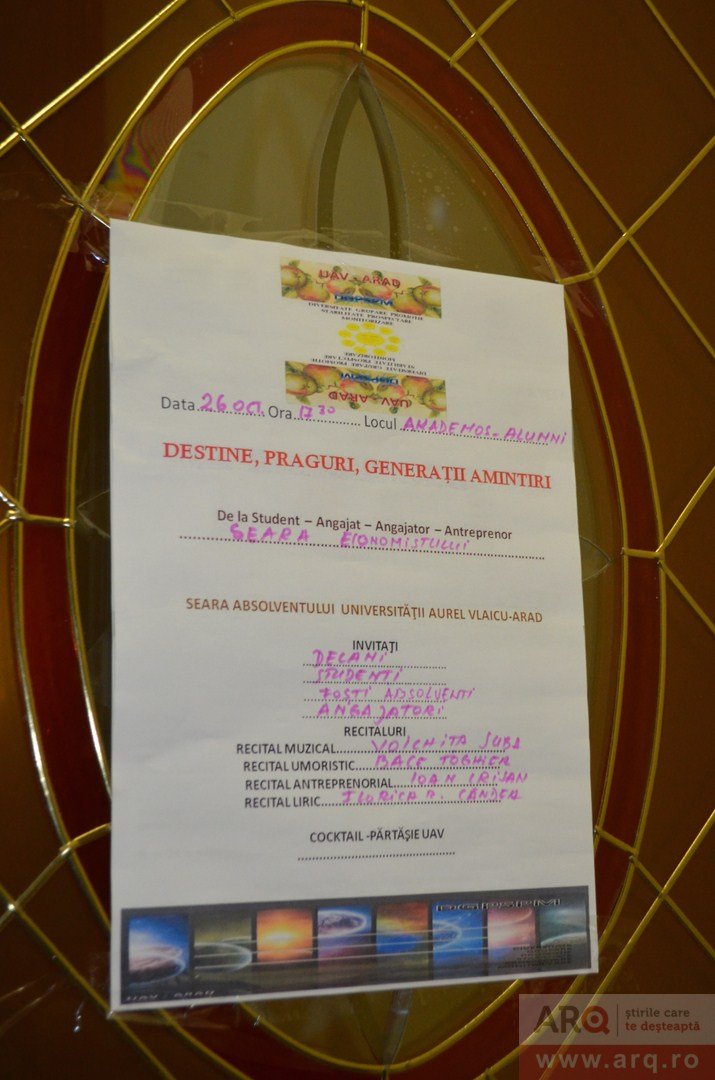 UAV - ARAD
DGPSPM
DIVERSITATE GRUPARE PROMOTIE
STABILITATE PROSPECTARE
MONITORIZARE
MONITORIZARE
STABILITATE PROSPECTARE
DIVERSITATE GRUPARE PROMOTIE
DGPSPM
UAV - ARAD
Data 26 OCT. Ora 17 30 Locul AKADEMOS - ALUMNI
DESTINE, PRAGURI, GENERAȚII AMINTIRI
De la Student – Angajat – Angajator – Antreprenor
SEARA ECONOMISTULUI
SEARA ABSOLVENTULUI UNIVERSITĂȚII AUREL VLAICU-ARAD
INVITAȚI
DECANI
STUDENTI
FOSTI ABSOLVENTI
ANGAJATORI
RECITALURI
RECITAL MUZICAL VOICHITA SUBA
RECITAL UMORISTIC
RECITAL ANTREPRENORIAL IOAN CRIJAN
RECITAL LIRIC FLORICA R. CÂNDEA
COCKTAIL -PĂRTĂȘIE UAV
DGPSPM
UAV - ARAD
ARQ știrile care
te deșteaptă
www.arq.ro